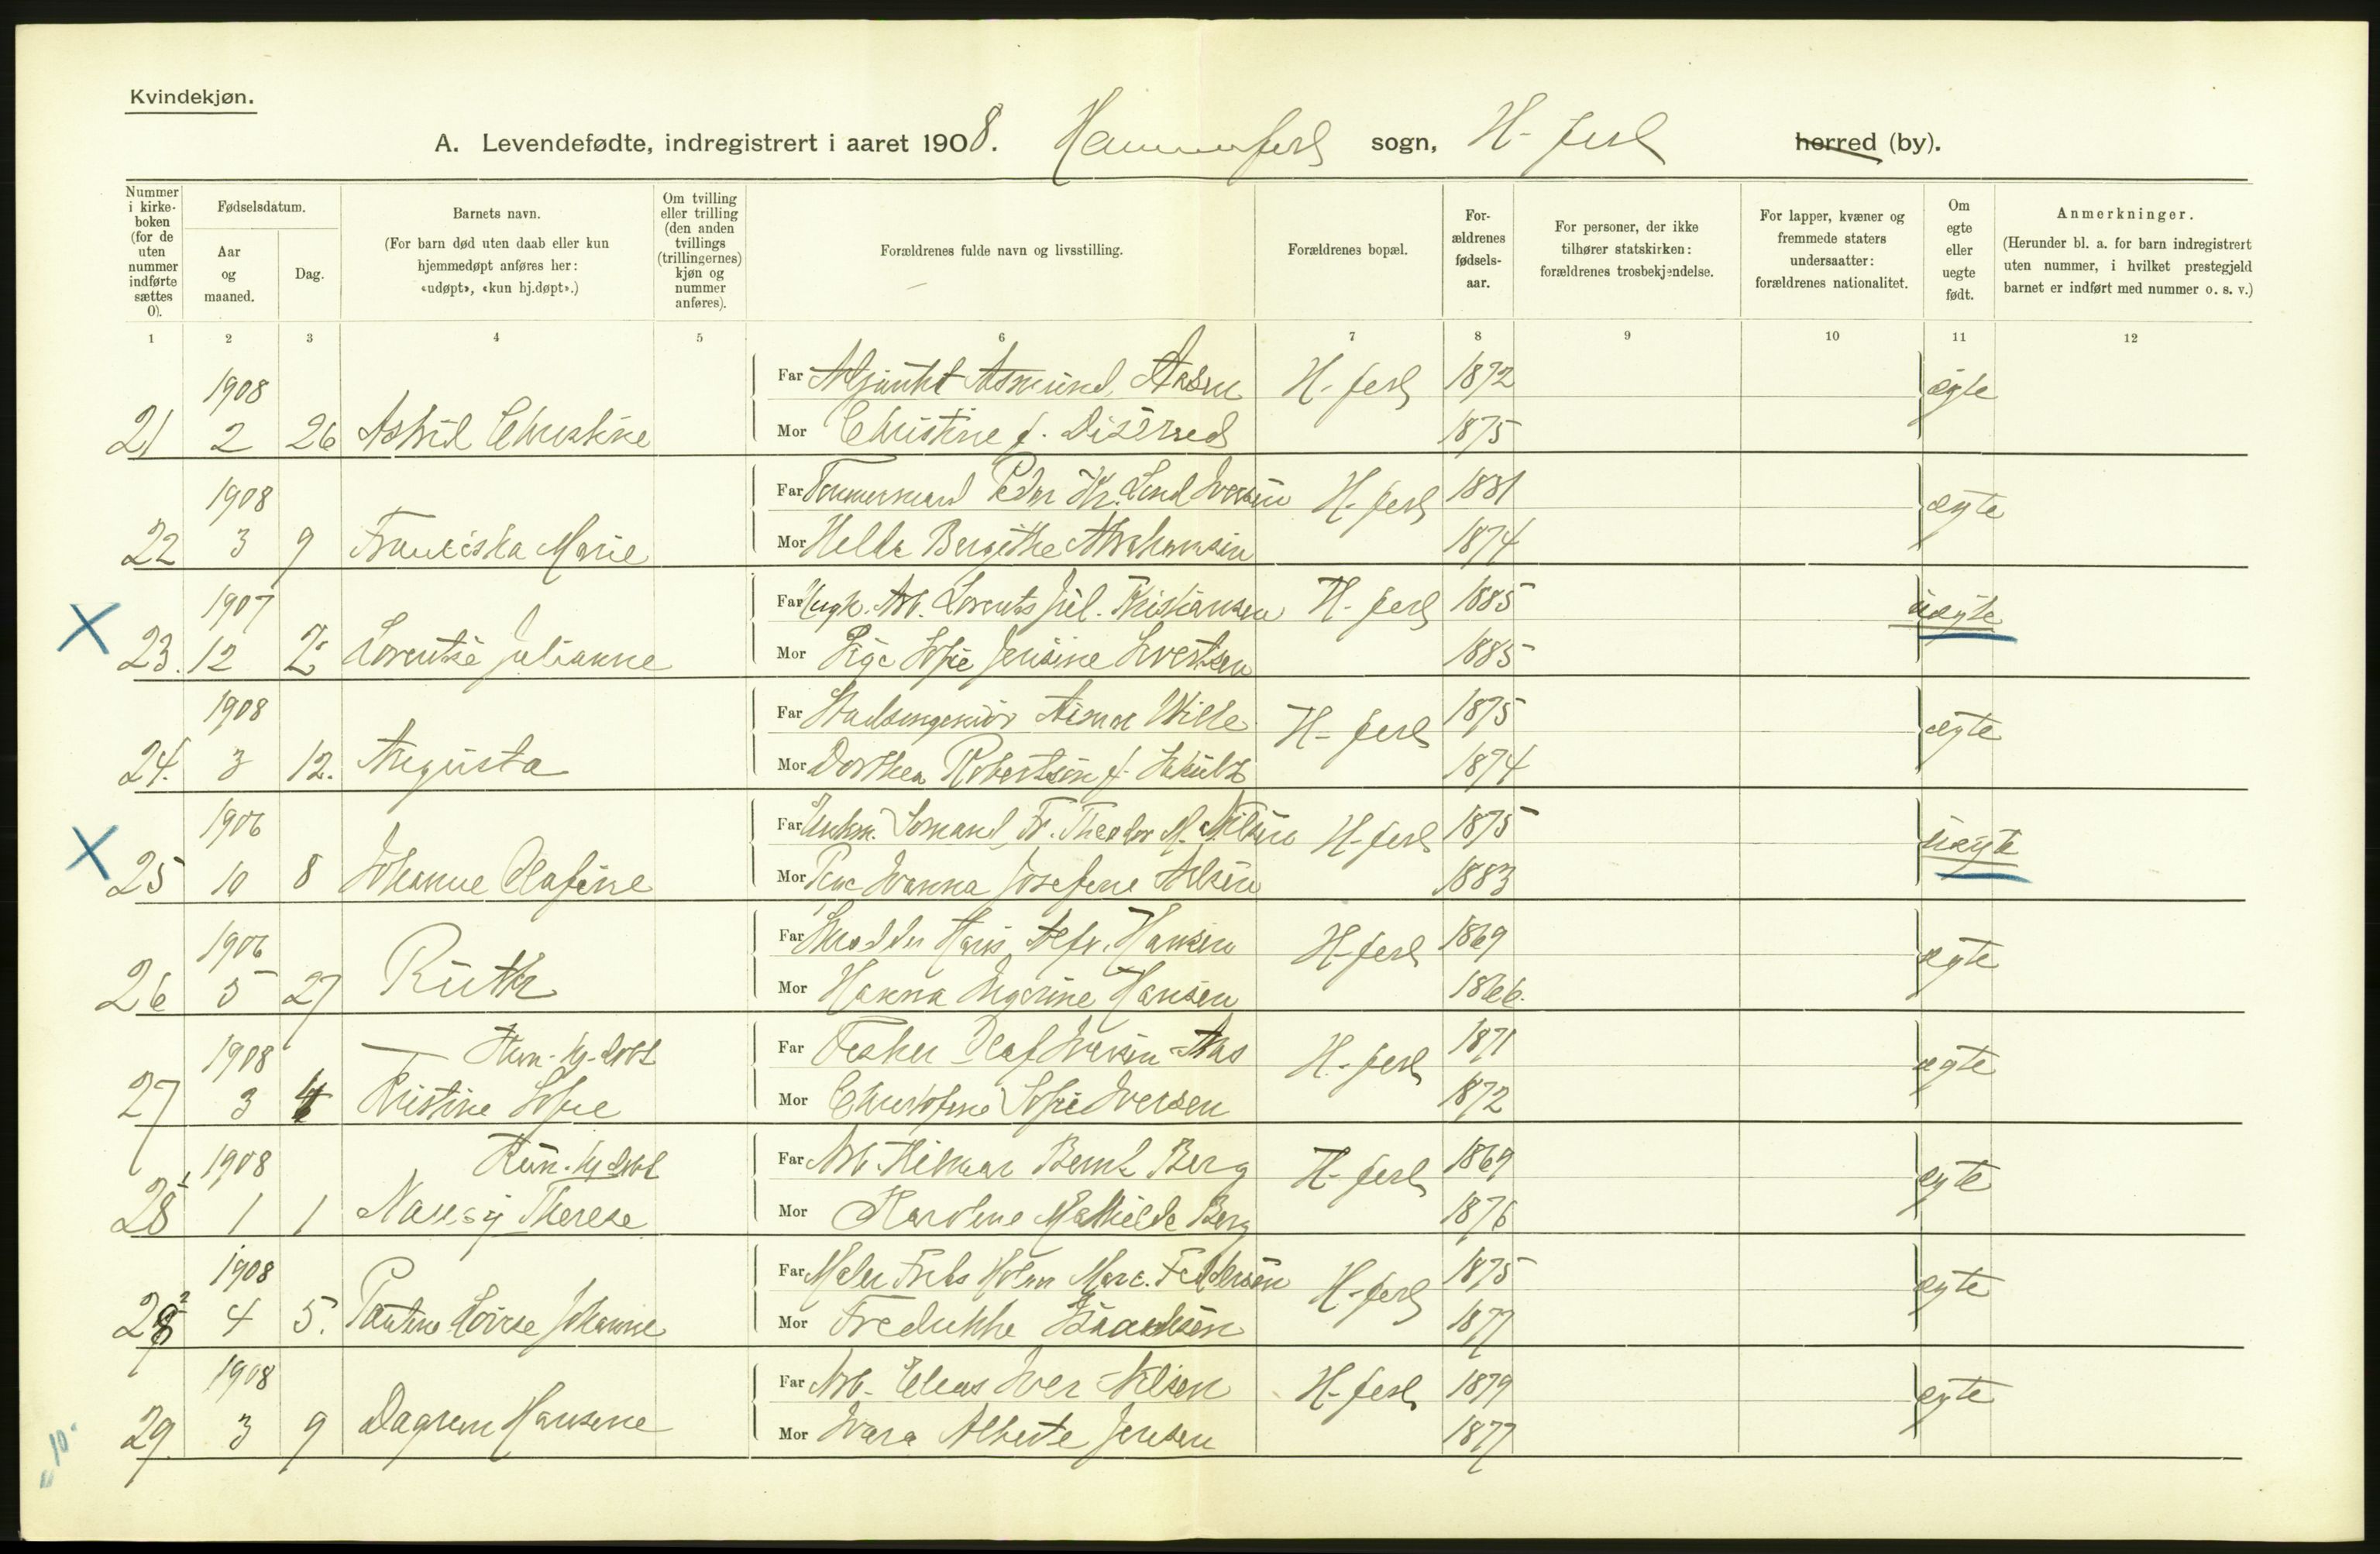 Kvindekjøn.
A. Levendefødte, indregistrert i aaret 1908. Hammerfest sogn, H-fest herred (by).
Nummer i kirke-boken (for de uten nummer indførte sættes 0).
Fødselsdatum.
Aar og maaned.
Dag.
Barnets navn.
(For barn død uten daab eller kun hjemmedøpt anføres her: «udøpt», «kun hj.døpt».)
Om tvilling eller trilling (den anden tvillings (trillingernes) kjøn og nummer anføres).
Forældrenes fulde navn og livsstilling.
Forældrenes bopæl.
For-ældrenes fødsels-aar.
For personer, der ikke tilhører statskirken: forældrenes trosbekjendelse.
For lapper, kvæner og fremmede staters undersaatter: forældrenes nationalitet.
Om egte eller uegte født.
Anmerkninger.
(Herunder bl. a. for barn indregistrert uten nummer, i hvilket prestegjeld barnet er indført med nummer o. s. v.)
1 2 3 4 5 6 7 8 9 10 11 12
1908 Far Asmund Aasen H-fest 1872 ægte
21 2 26 Astrid Christine Mor Christine f. 1875
1908 Far Tømmermand Peder Kr. Lind Iversen H-fest 1881 ægte
22 3 9 Franciska Marie Mor Helda Bergithe Abrahamsen 1874
1907 Far Ungk. Arb. Lorents Jul. Kristiansen H-fest 1885 uægte
X 23. 12 2 Lorentse Julianne Mor Pige Sofie Jensine Sivertsen 1885
1908 Far Stadsingeniør Wille H-fest 1875 ægte
24. 3 12. Augusta Mor Dorthea Robertson f. 1874
1906 Far Ungkm. Sømand Fr. Theodor M. Nilsen H-fest 1875 uægte
X 25 10 8 Johanne Olafine Mor Pige Ivanna Josefine Nilsen 1883
1906 Far Hans Alfr. Hansen H-fest 1869 ægte
26 5 27 Ruth Mor Hanna Ingerine Hansen 1866.
1908 — Kun hj-døbt Far Fisker Olaf Iversen Aas H-fest 1871 ægte
27 3 4 Kristine Sofie Mor Christofine Sofie Iversen 1872
1908 Kun hj døbt Far Arb. Hilmar Bernt Berg H-fest 1869 ægte
28 1 1 1 Nancy Therese Mor Karoline Mathilde Berg 1876
1908 Far Maler Frits Holm Marc. Feddersen H-fest 1875 ægte
28 2 4 5. Pauline Lovise Johanne Mor Fredrikke Isaaksen 1877
1908 Far Arb. Elias Iver Nilsen H-fest 1879 ægte
29. 3 9 Dagrun Hansine Mor Ivara Alberte Jensen 1877
10.